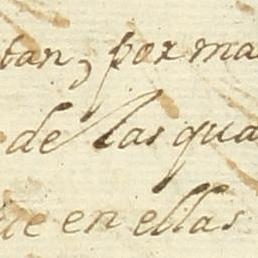 tan, por ma
de las qua
ue en ellas